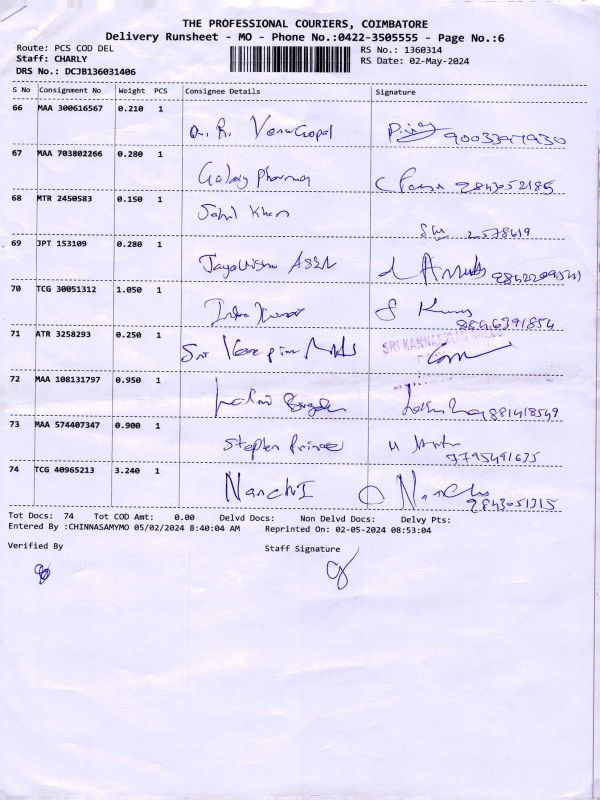 THE PROFESSIONAL COURIERS, COIMBATORE
Delivery Runsheet - MO - Phone No.:0422-3505555 - Page No.:6
Route: PCS COD DEL RS No.: 1360314
Staff: CHARLY RS Date: 02-May-2024
DRS No.: DCJB136031406
S No Consignment No Weight PCS Consignee Details Signature
66 MAA 300616567 0.210 1
Venu Gopal
67 MAA 703802266 0.280 1
Galaxy Pharmacy 9843052185
68 MTR 2450583 0.150 1
Sahil Khan 2578619
69 JPT 153109 0.280 1
70 TCG 30051312 1.050 1
9846391854
71 ATR 3258293 0.250 1
Sri
SRI KANNAPIRAN
72 MAA 108131797 0.950 1
73 MAA 574407347 0.900 1
Stephen Prince
9795491635
74 TCG 40965213 3.240 1
NanchI
9843051315
Tot Docs: 74 Tot COD Amt: 0.00 Delvd Docs: Non Delvd Docs: Delvy Pts:
Entered By :CHINNASAMYMO 05/02/2024 8:40:04 AM Reprinted On: 02-05-2024 08:53:04
Verified By Staff Signature